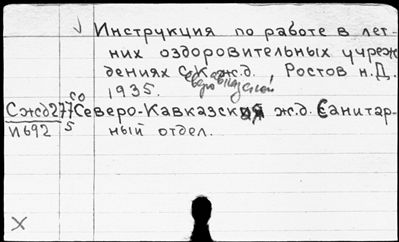 Инструкция по работе в лет-
них оздоровительных учреж
дениях Сев. Кав. ж.д., Ростов н. Д.
1935.
со
Сжд277 Северо-Кавказская ж.д. Санитар-
И692 5 ный отдел.
X